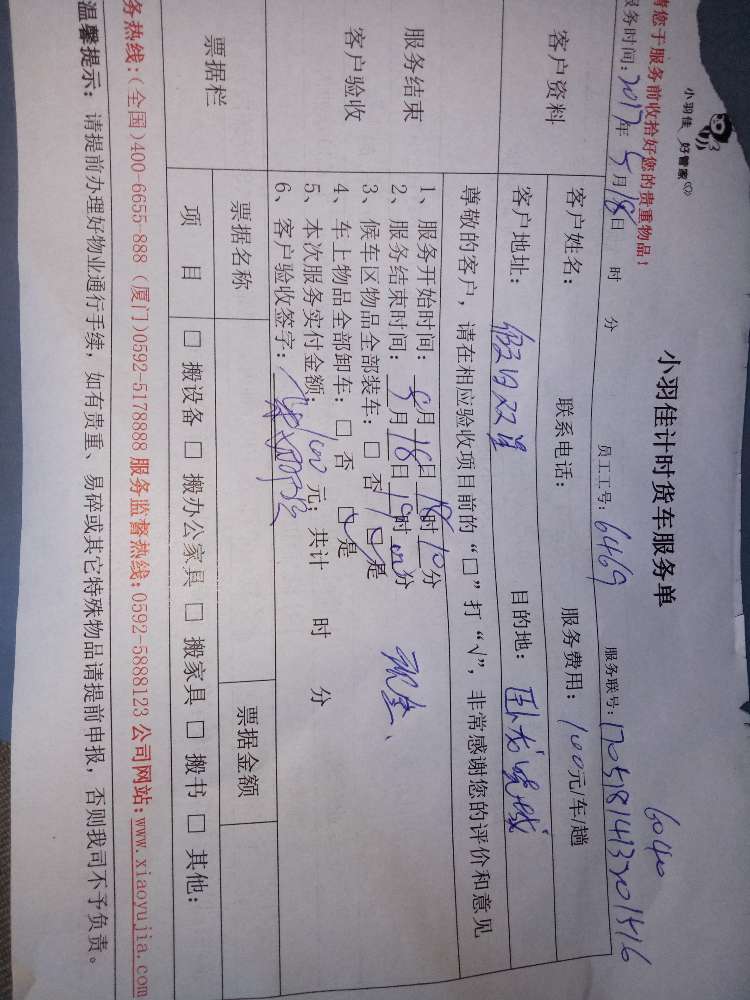 小羽佳 好管家
小羽佳计时货车服务单
6040
请您于服务前收拾好您的贵重物品!
服务时间:2017年5月18日 时 分 员工工号:6469 服务联号:
客户资料
客户姓名: 联系电话: 服务费用:100元/车/趟
客户地址:假日双星 目的地:卧龙晓城
尊敬的客户,请在相应验收项目前的“□”打“√”,非常感谢您的评价和意见
服务结束
客户验收
1、服务开始时间:5月18日18时10分
2、服务结束时间:5月18日19时00分
3、候车区物品全部装车:□ 否 □是 现金、
4、车上物品全部卸车:□ 否 □是
5、本次服务实付金额:100元;共计 时 分
6、客户验收签字:
票据栏
票据名称 票据金额
项 目 □ 搬设备 □ 搬办公家具 □ 搬家具 □ 搬书 □ 其他:
务热线:(全国)400-6655-888 (厦门)0592-5178888 服务监督热线:0592-5888123 公司网站:www.xiaoyujia.com
温馨提示:请提前办理好物业通行手续,如有贵重、易碎或其它特殊物品请提前申报,否则我司不予负责。